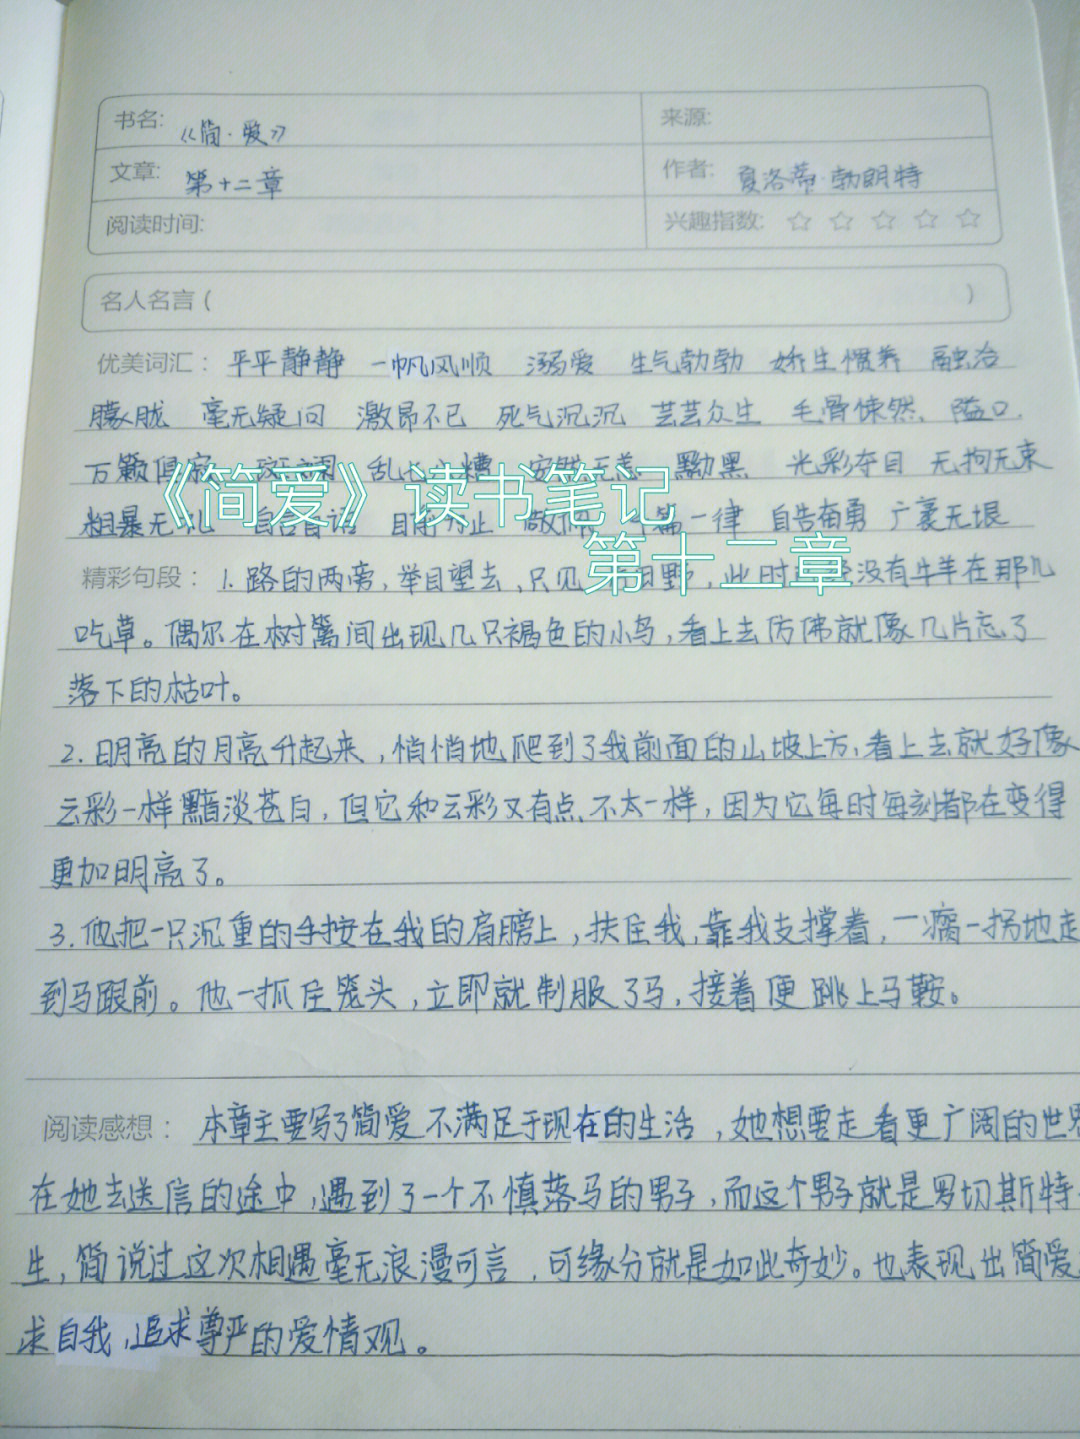 书名: 《简·爱》 来源:
文章: 第十二章 作者: 夏洛蒂·勃朗特
阅读时间: 兴趣指数: ☆ ☆ ☆ ☆ ☆
名人名言 ( )
优美词汇: 平平静静 一帆风顺 溺爱 生气勃勃 娇生惯养 融洽
朦胧 毫无疑问 激昂不已 死气沉沉 芸芸众生 毛骨悚然、隘口.
万籁俱寂 斑斓 乱七八糟 安然无恙 黝黑 光彩夺目 无拘无束
《简爱》读书笔记
粗暴无礼 自言自语 目前为止 一律 自告奋勇 广袤无垠
第十二章
精彩句段: 1.路的两旁,举目望去,只见 田野,此时 没有牛羊在那儿
吃草。偶尔在树篱间出现几只褐色的小鸟,看上去仿佛就像几片忘了
落下的枯叶。
2.明亮的月亮升起来,悄悄地爬到了我前面的山坡上方,看上去就好像
云彩一样黯淡苍白,但它和云彩又有点不太一样,因为它每时每刻都在变得
更加明亮了。
3.他把一只沉重的手按在我的肩膀上,扶住我,靠我支撑着,一瘸一拐地走
到马跟前。他一抓住笼头,立即就制服了马,接着便跳上马鞍。
阅读感想: 本章主要写了简爱不满足于现在的生活,她想要走看更广阔的世界
在她去送信的途中,遇到了一个不慎落马的男子,而这个男子就是罗切斯特
生,简说过这次相遇毫无浪漫可言,可缘分就是如此奇妙。也表现出简爱
求自我,追求尊严的爱情观。